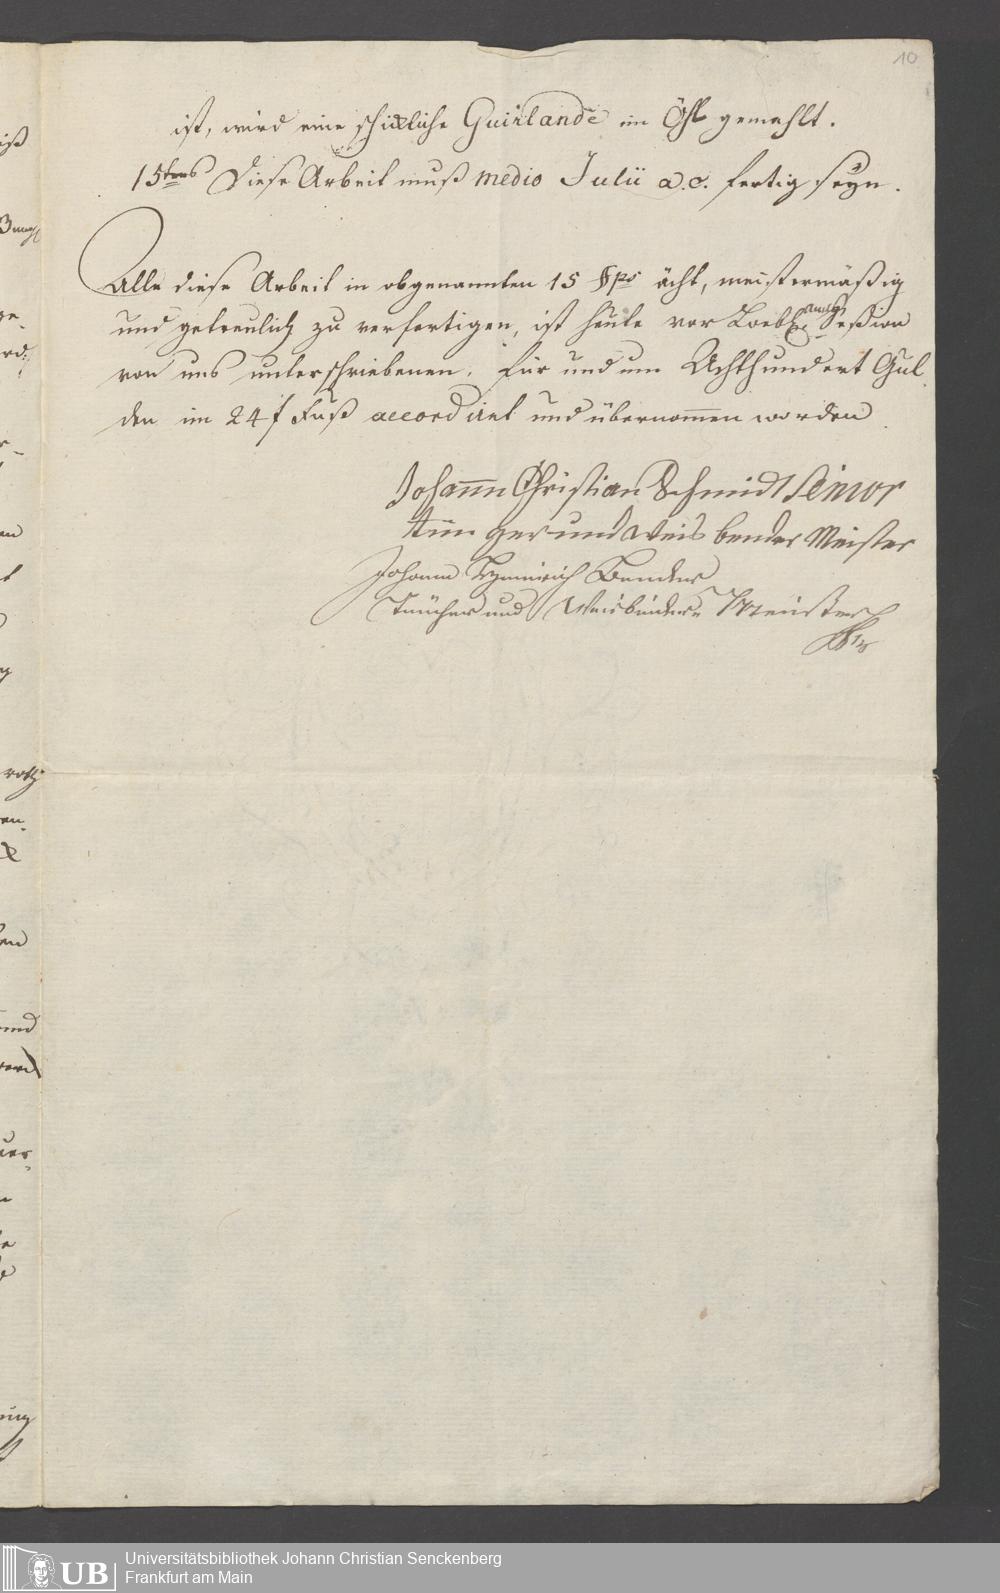 10
ist, wird eine schickliche Guirlande im Öhl gemahlt.
15tens Diese Arbeit muß medio Julii a. c. fertig seyn.
Alle diese Arbeit in obgenannten 15 §pis ächt, meistermäßig
und getreulich zu verfertigen, ist heute vor Loebl. Seßion
von uns unterschriebenen, für und um Achthundert Gul
den im 24 f Fuß accordirt und übernom̅en worden
Johann Christian Schmidt Senior
und Weis bender Meister
Johann Henrich Bender
Tüncher und Weisbinder Meister
Universitätsbibliothek Johann Christian Senckenberg
Frankfurt am Main
UB